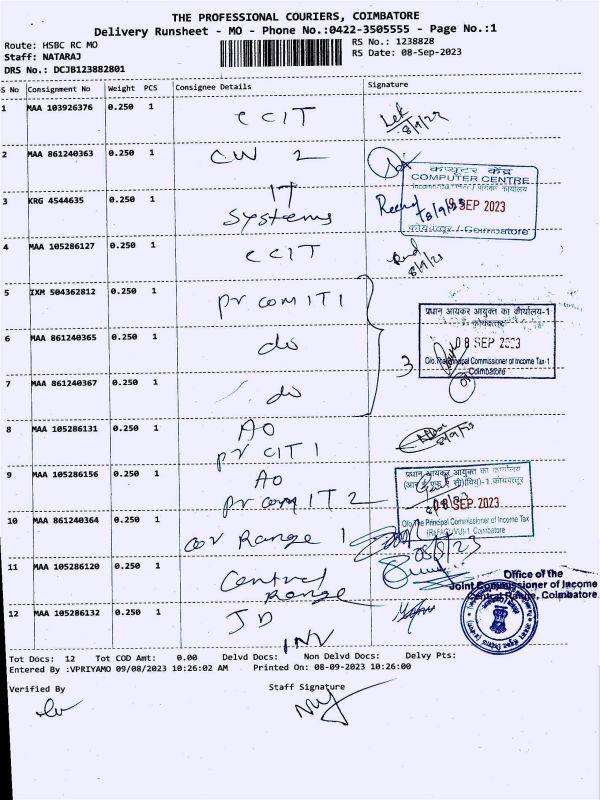 THE PROFESSIONAL COURIERS, COIMBATORE
Delivery Runsheet - MO - Phone No.:0422-3505555 - Page No.:1
Route: HSBC RC MO
RS No.: 1238828
Staff: NATARAJ
RS Date: 08-Sep-2023
DRS No.: DCJB123882801
S No Consignment No Weight PCS Consignee Details Signature
1 MAA 103926376 0.250 1 CCIT
8/9/23
2 MAA 861240363 0.250 1 CW 2
कंप्यूटर केंद्र
COMPUTER CENTRE
3 KRG 4544635 0.250 1 IT
Systems
8/9/23
SEP 2023
कोयम्बत्तूर / Coimbatore
4 MAA 105286127 0.250 1 CCIT
8/9/23
5 IXM 504362812 0.250 1 Pr com IT 1
प्रधान आयकर आयुक्त का कार्यालय-1
कोयम्बत्तूर
6 MAA 861240365 0.250 1 do
08 SEP 2023
3
O/o. The Principal Commissioner of Income Tax-1
Coimbatore
7 MAA 861240367 0.250 1 do
8 MAA 105286131 0.250 1 AO
Pr CIT 1
9 MAA 105286156 0.250 1 AO
Pr com IT 2
प्रधान आयकर आयुक्त का कार्यालय
SEP 2023
O/o. The Principal Commissioner of Income Tax
Coimbatore
10 MAA 861240364 0.250 1 Cor Range 1
08/9/23
11 MAA 105286120 0.250 1 Central
Range
Office of the
Joint Commissioner of Income
Central Range, Coimbatore
12 MAA 105286132 0.250 1 JD
INV
Tot Docs: 12 Tot COD Amt: 0.00 Delvd Docs: Non Delvd Docs: Delvy Pts:
Entered By :VPRIYAMO 09/08/2023 10:26:02 AM Printed On: 08-09-2023 10:26:00
Verified By Staff Signature